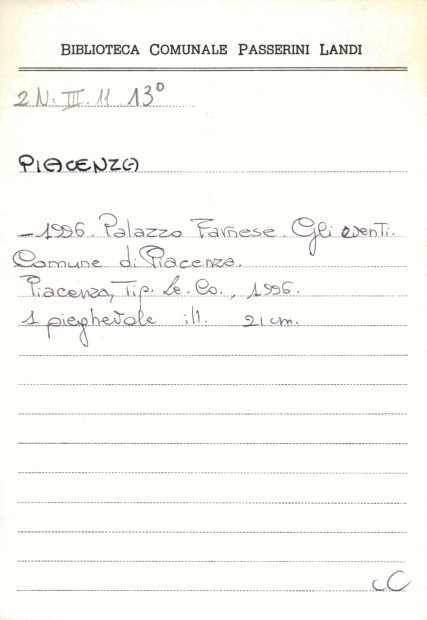 BIBLIOTECA COMUNALE PASSERINI LANDI
2 N. III. 11 13°
PIACENZA
- 1996. Palazzo Farnese. Gli eventi.
Comune di Piacenza.
Piacenza, Tip. Le. Co., 1996.
1 pieghevole ill. 21 cm.
CC